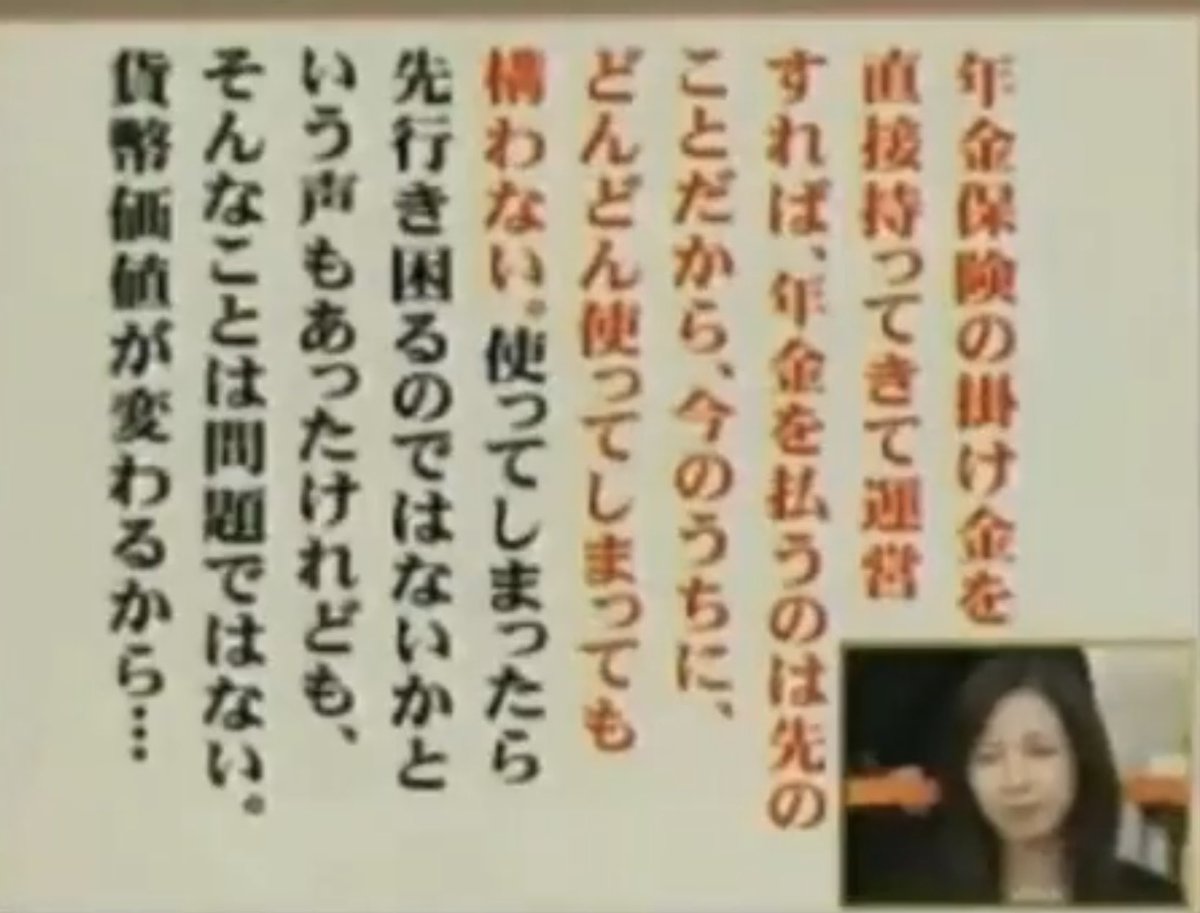 年金保険の掛け金を
直接持ってきて運営
すれば、年金を払うのは先の
ことだから、今のうちに、
どんどん使ってしまっても
構わない。使ってしまったら
先行き困るのではないかと
いう声もあったけれども、
そんなことは問題ではない。
貨幣価値が変わるから…